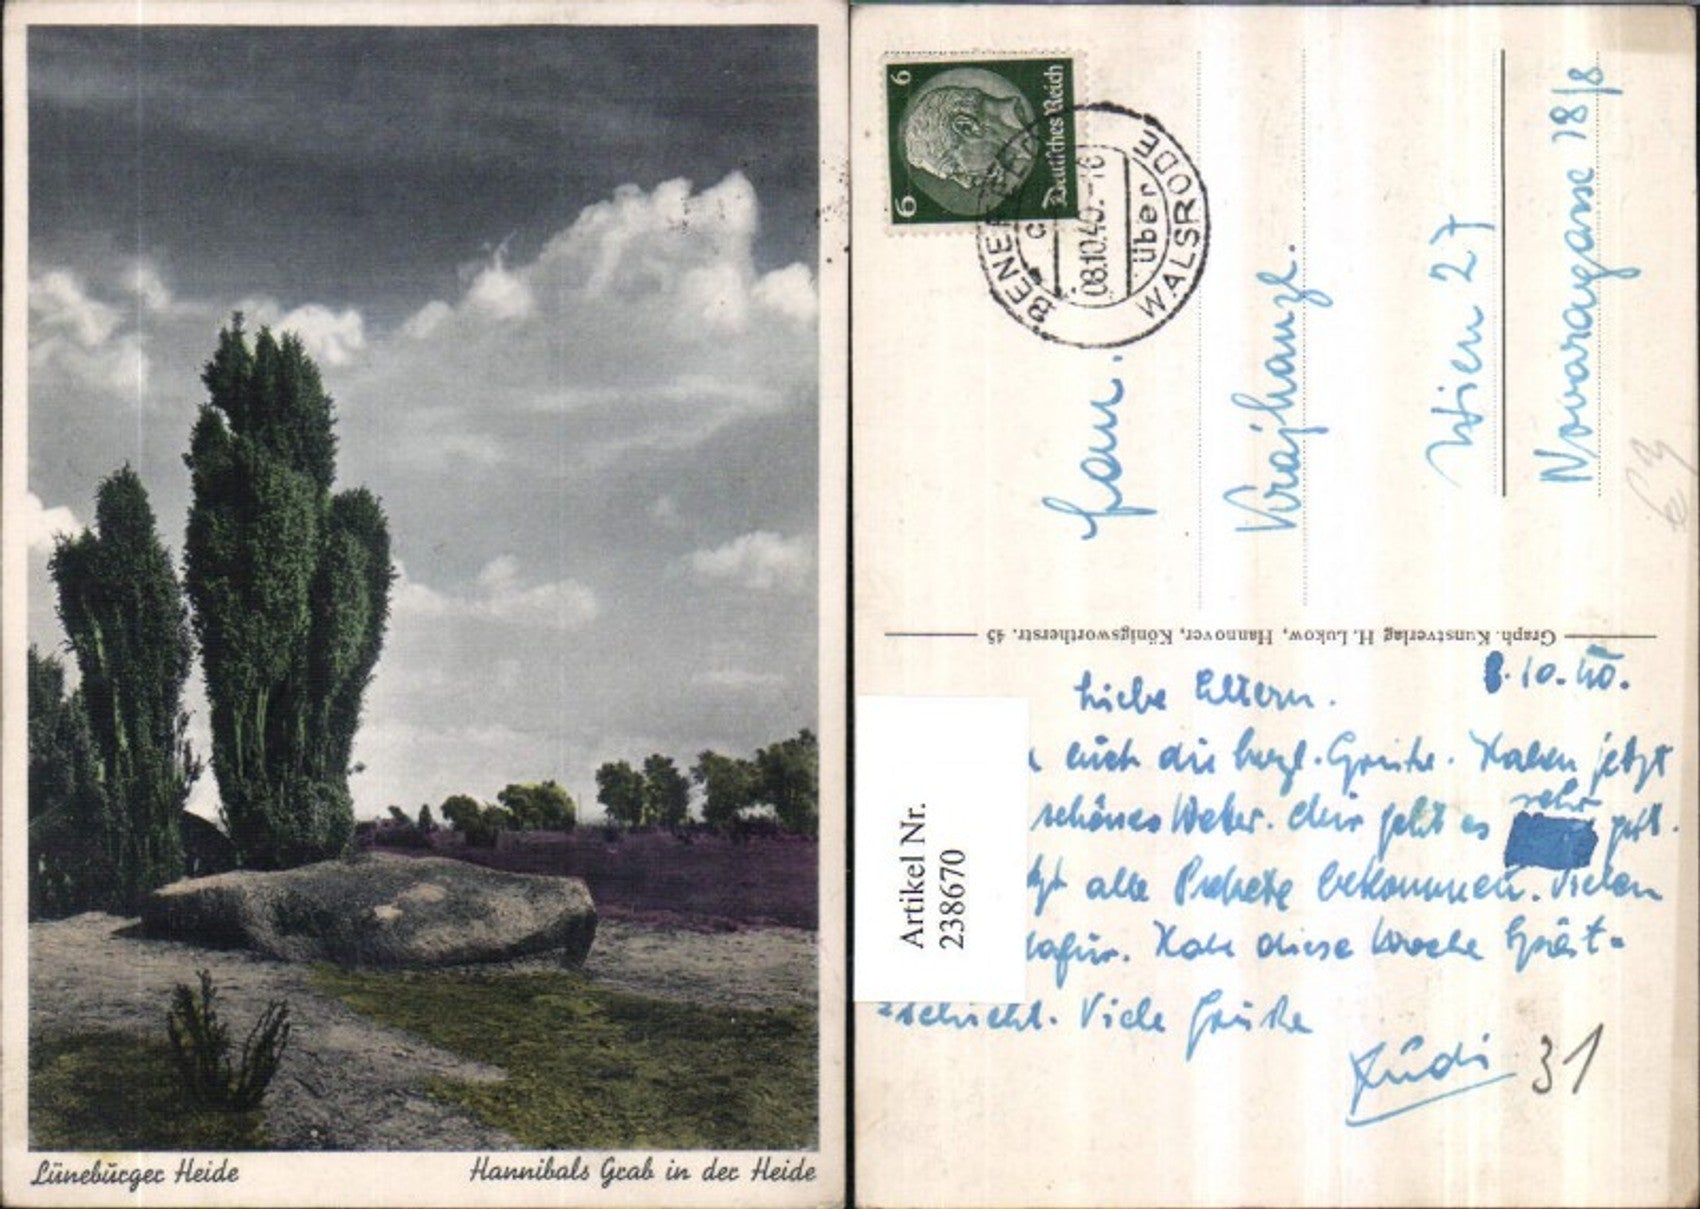 Lüneburger Heide
Hannibals Grab in der Heide
6
6
Deutsches Reich
BENEFELD
08.10.40.-16
über
WALSRODE
Fam.
Krajhanzl.
Wien 27
Novaragasse 18/8
Graph. Kunstverlag H. Lukow, Hannover, Königswortherstr. 45
8.10.40.
Liebe Eltern.
euch die herzl. Grüße. Haben jetzt
schönes Wetter. Mir geht es sehr gut.
alle Pakete bekommen. Vielen
dafür. Habe diese Woche Spät=
=schicht. Viele Grüße
Rudi
31
Artikel Nr.
238670